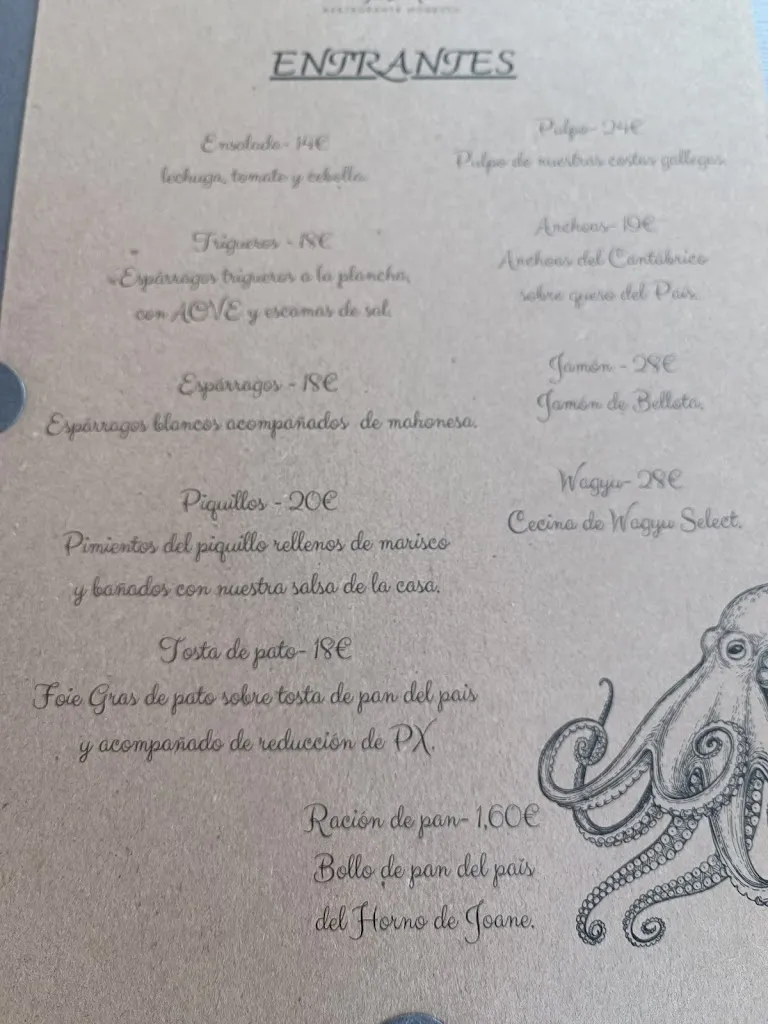 ENTRANTES
Ensalada- 14€
lechuga, tomate y cebolla.
Trigueros - 18€
Espárragos trigueros a la plancha,
con AOVE y escamas de sal.
Espárragos - 18€
Espárragos blancos acompañados de mahonesa.
Piquillos - 20€
Pimientos del piquillo rellenos de marisco
y bañados con nuestra salsa de la casa.
Tosta de pato- 18€
Foie Gras de pato sobre tosta de pan del pais
y acompañado de reducción de PX.
Pulpo- 24€
Pulpo de nuestras costas gallegas.
Anchoas- 19€
Anchoas del Cantábrico
sobre queso del País.
Jamón - 28€
Jamón de Bellota.
Wagyu- 28€
Cecina de Wagyu Select.
Ración de pan- 1,60€
Bollo de pan del país
del Horno de Joane.